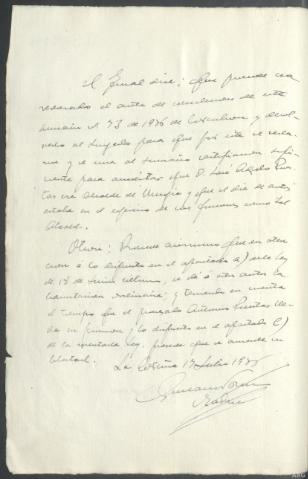 El Fiscal dice: Que procede sea
revocado el auto de conclusion de este
sumario nº 73 de 1936 de Corcubion y devol-
verlo al Juzgado para que por este se recla-
me y se una al sumario certificacion sufi-
ciente para acreditar que D. Luis
era Alcalde de Mugia y que el dia de autos
estaba en el ejercicio de sus funciones como tal
Alcalde.
Otrosi: Procede asimismo que en aten-
cion a lo dispuesto en el apartado a) de la Ley
de 13 de Junio ultimo, se dé á estos autos la
tramitacion ordinaria; y teniendo en cuenta
el tiempo que el procesado Antonio lle-
va en prision y lo dispuesto en el apartado C)
de la mentada Ley, procede que se acuerde su
libertad.
La Coruña 17 Julio 1936